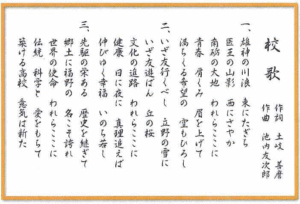 校歌
作詞 土岐善麿
作曲 池内友次郎
一、雄神の川浪 東にたぎち
医王の山影 西にさやか
南砺の大地 われらここに
青春 肩くみ 眉を上げて
満ちくる希望の 雲もひろし
二、いざ行くべし 立野の雪に
いざ友遊ばん 丘の桜
文化の追路 われらここに
健康 日に夜に 真理追えば
伸びゆく幸福 いのち若し
三、先駆の栄ある 歴史を継ぎて
郷土に福野の 名こそ誇れ
世界の使命 われらここに
伝統 科学と 愛をもちて
築ける高校 意気は新た